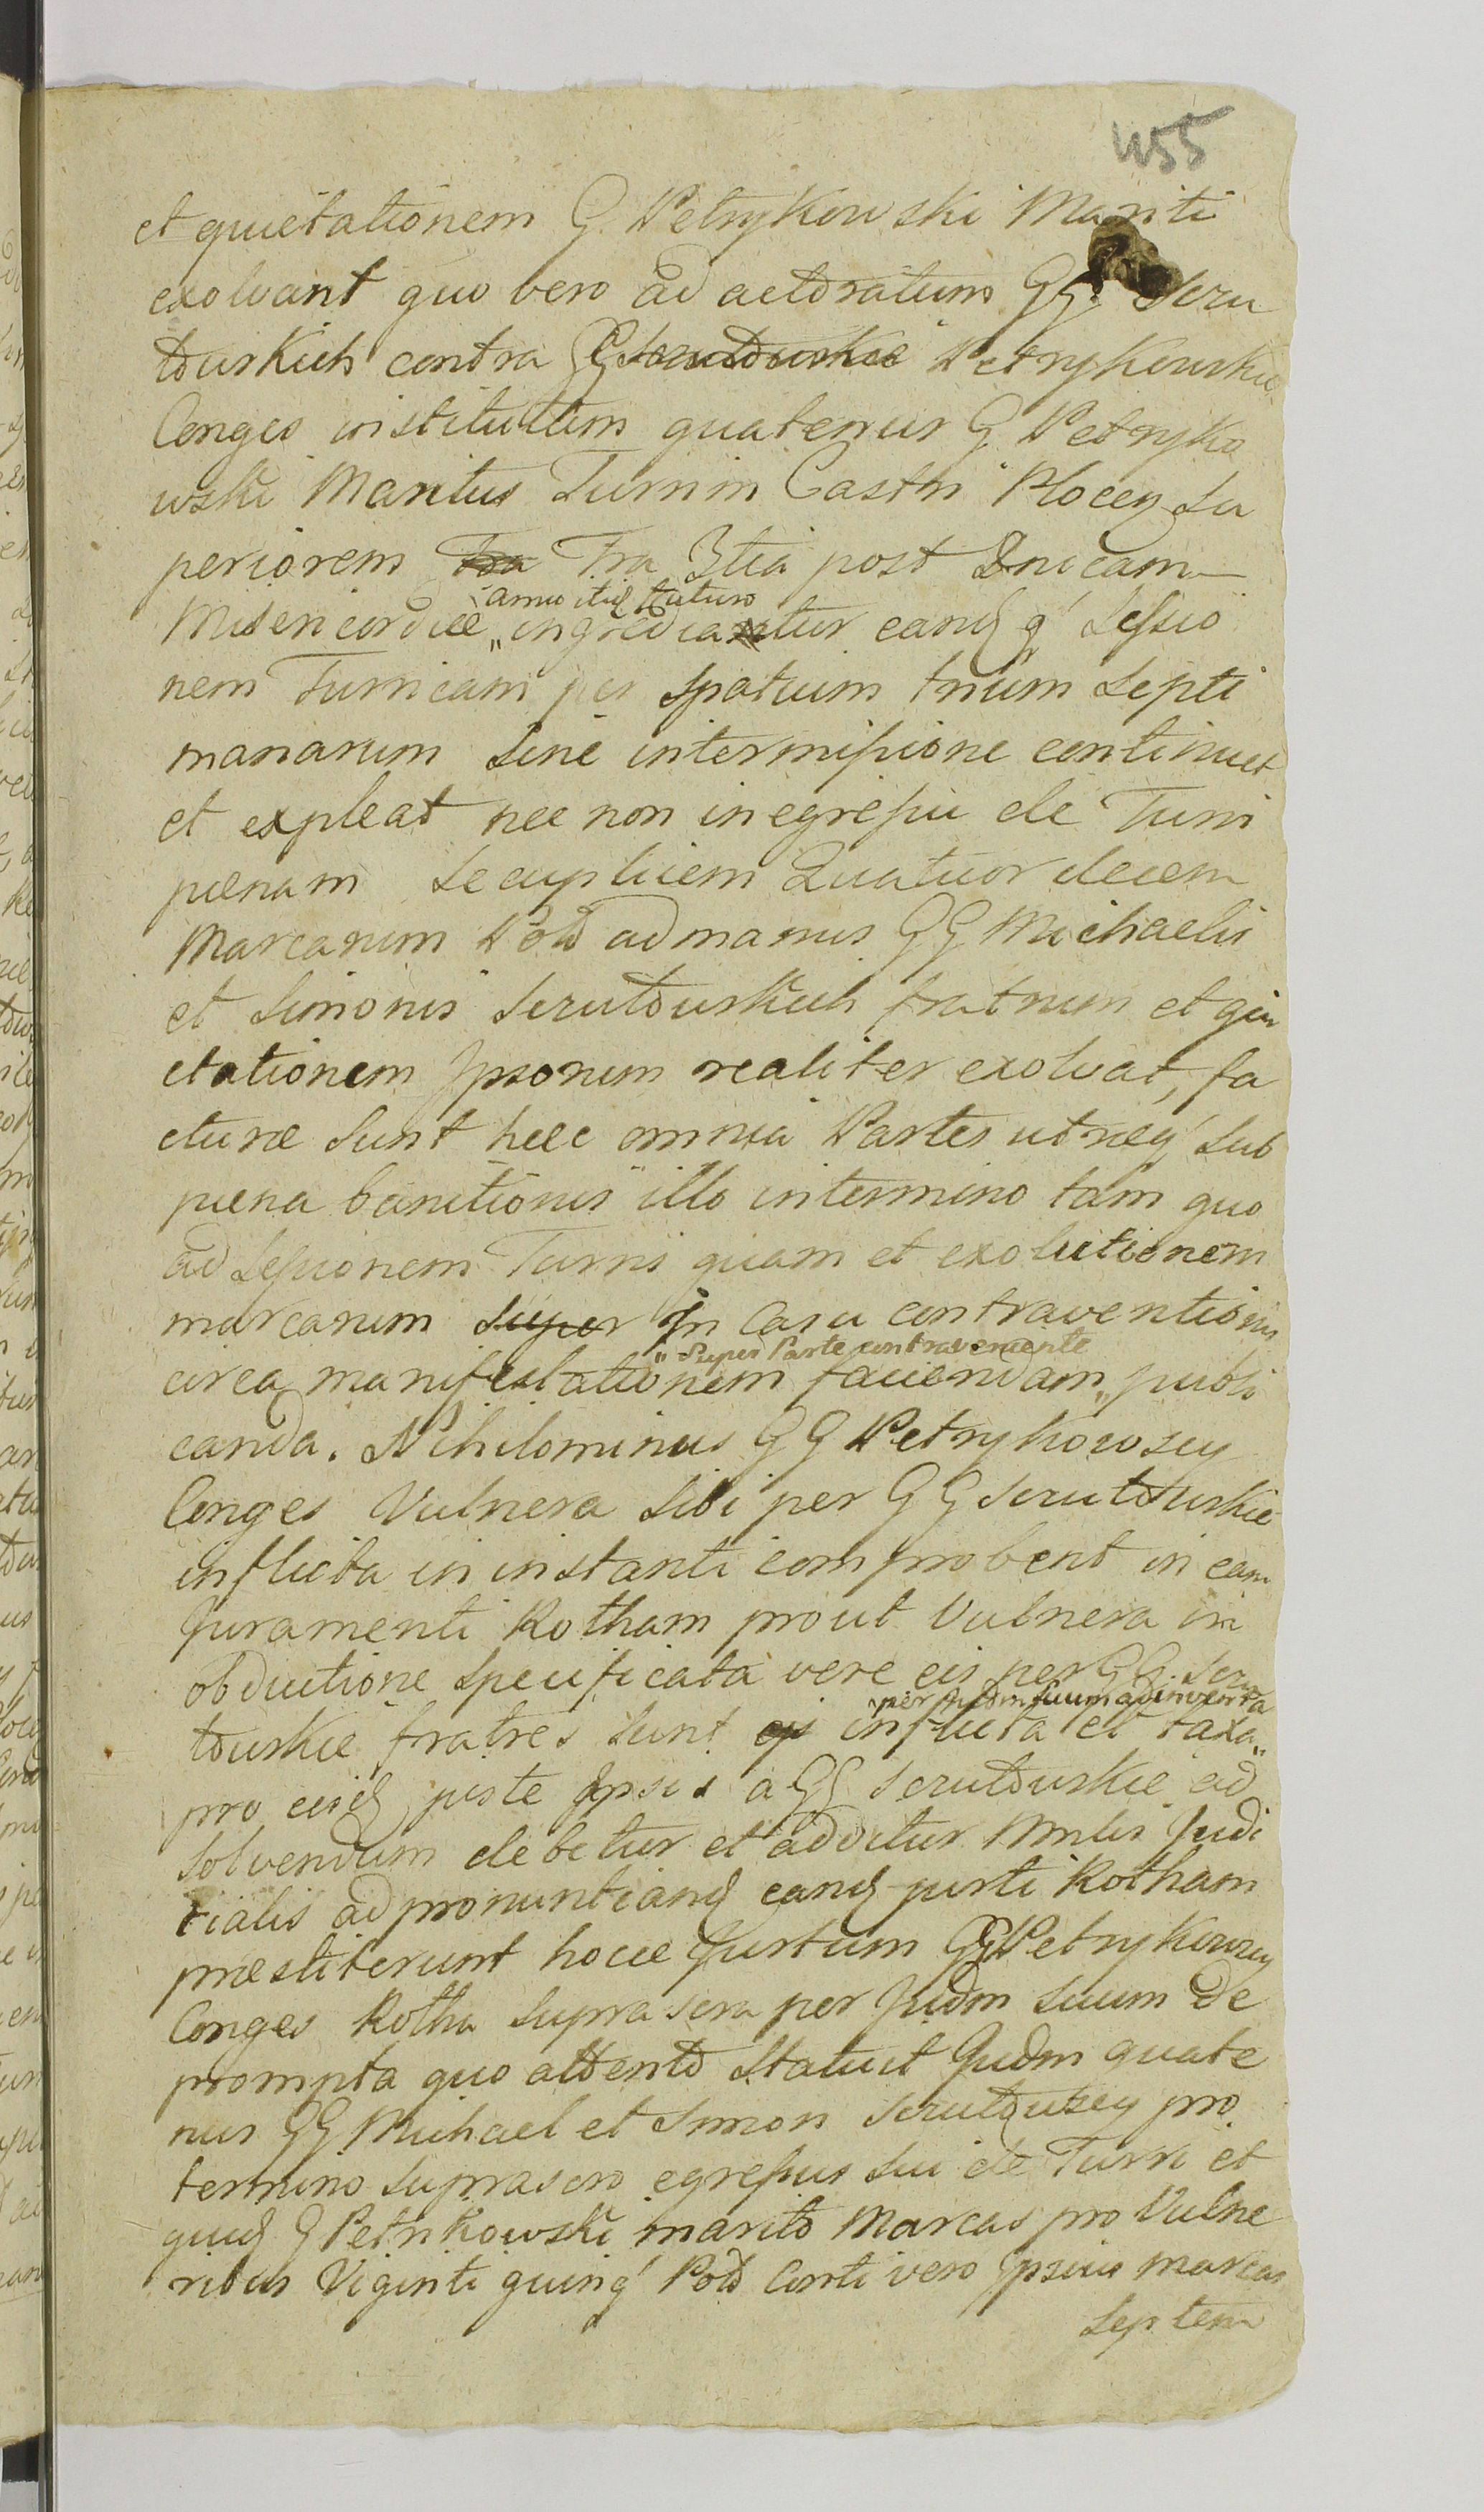 455
et quietationem G. Petrykowski Mariti
exolvant quo vero ad actoratum GG. Szru
towskich contra GG Szrutowskie Petrykowskie
Conges institutum quatenus G Petryko
wski Maritus Turrim Castri Plocen Su
periorem Fra Fra 3tia post Dnicam
anno itid futuro
Misericordiæ „ ingrediatur eandq Sessio
nem Turricam per Spatium trium Septi
manarum Sine intermissione continuet
et expleat nec non in egressu de Turri
pœnam Secuplicem Quatuor decem
Marcarum Pol ad manus GG Michaelis
et Simonis Szrutowskich fratrum et qui
etationem Ipsorum realiter exolvat, fa
cturæ Sunt hæc omnia Partes utræq Sub
pœna banitionis illo in termino tam quo
ad Sessionem Turris quam et exolutionem
marcarum super In Casu contraventionis
„ Super Parte contraveniente
circa manifestationem faciendam „ publi
canda. Nihilominus GG Petrykowscy
Conges Vulnera Sibi per GG Szrutowskie
inflicta in instanti comprobent in eam
Juramenti Rotham prout Vulnera in
obductione Specificata vere eis per GG. Szru
per Judm Suum adinventa
towskie fratres Sunt ej inflicta et taxa „
pro eisd juste Ipsis a GG Szrutowskie ad
Solvendum debetur et additur Mnlis Judi
cialis ad pronuntiand eand jurti Rotham
præstiterunt hocce Jurtum GG Petrykowscy
Conges Rotha Suprascra per Judm Suum de
prompta quo attento Statuit Judm quate
nus GG Michael et Simon Szrutowscy pro
termino Suprascro egressus Sui de Turri et
quid G Petrikowski marito Marcas pro Vulne
ribus Viginti quinq Pol Conti vero Ipsius marcas
Septem